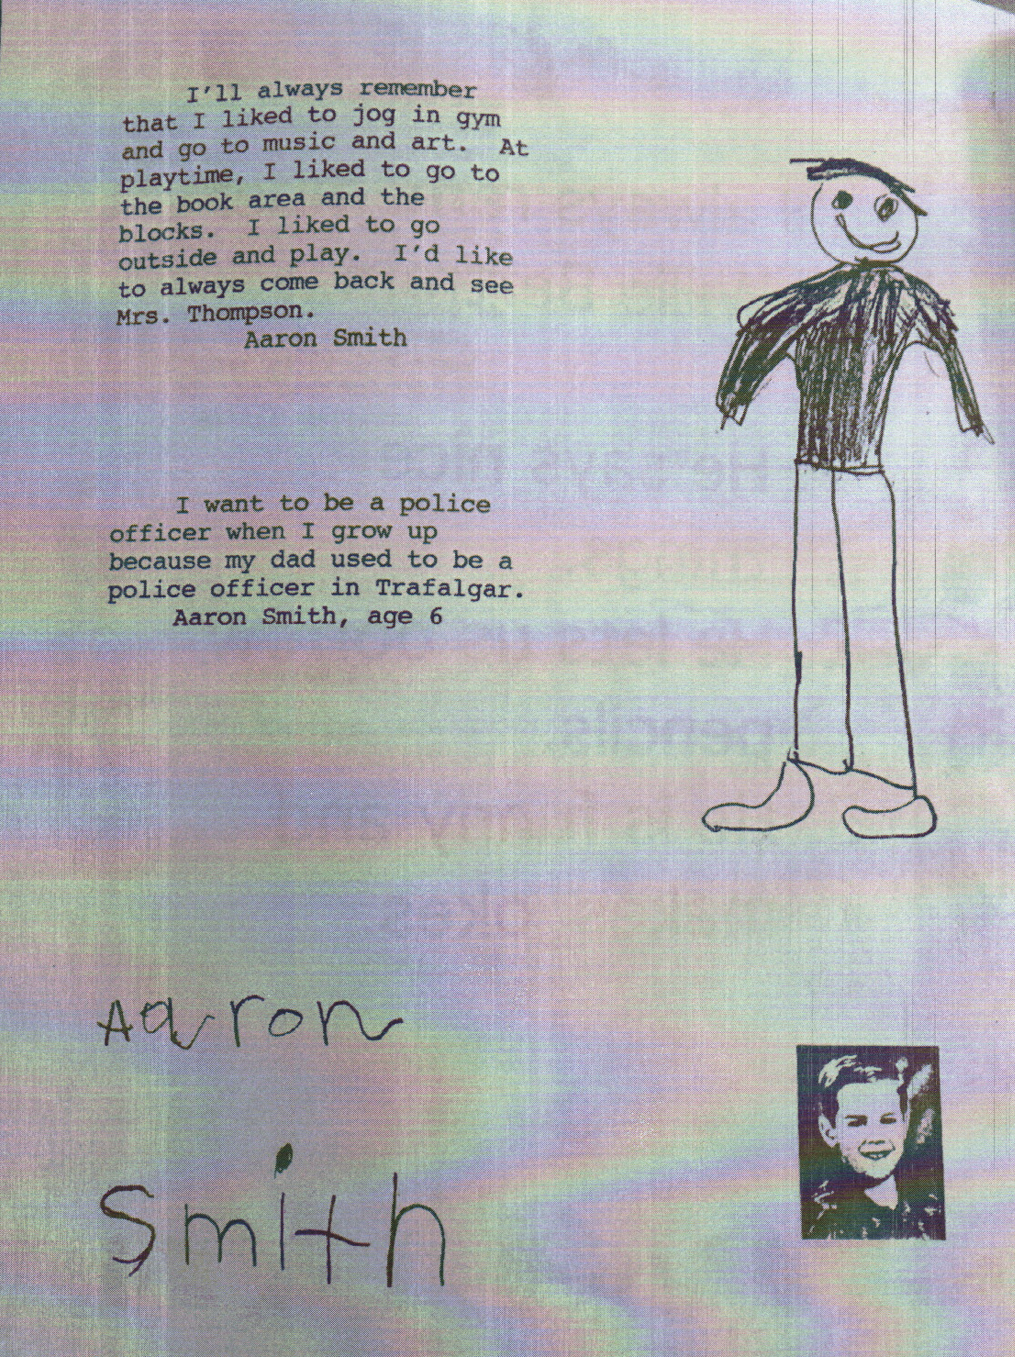 I'll always remember
that I liked to jog in gym
and go to music and art. At
playtime, I liked to go to
the book area and the
blocks. I liked to go
outside and play. I'd like
to always come back and see
Mrs. Thompson.
Aaron Smith
I want to be a police
officer when I grow up
because my dad used to be a
police officer in Trafalgar.
Aaron Smith, age 6
He says nice
He lets us do
pencils.
is funny and
Aaron
Smith